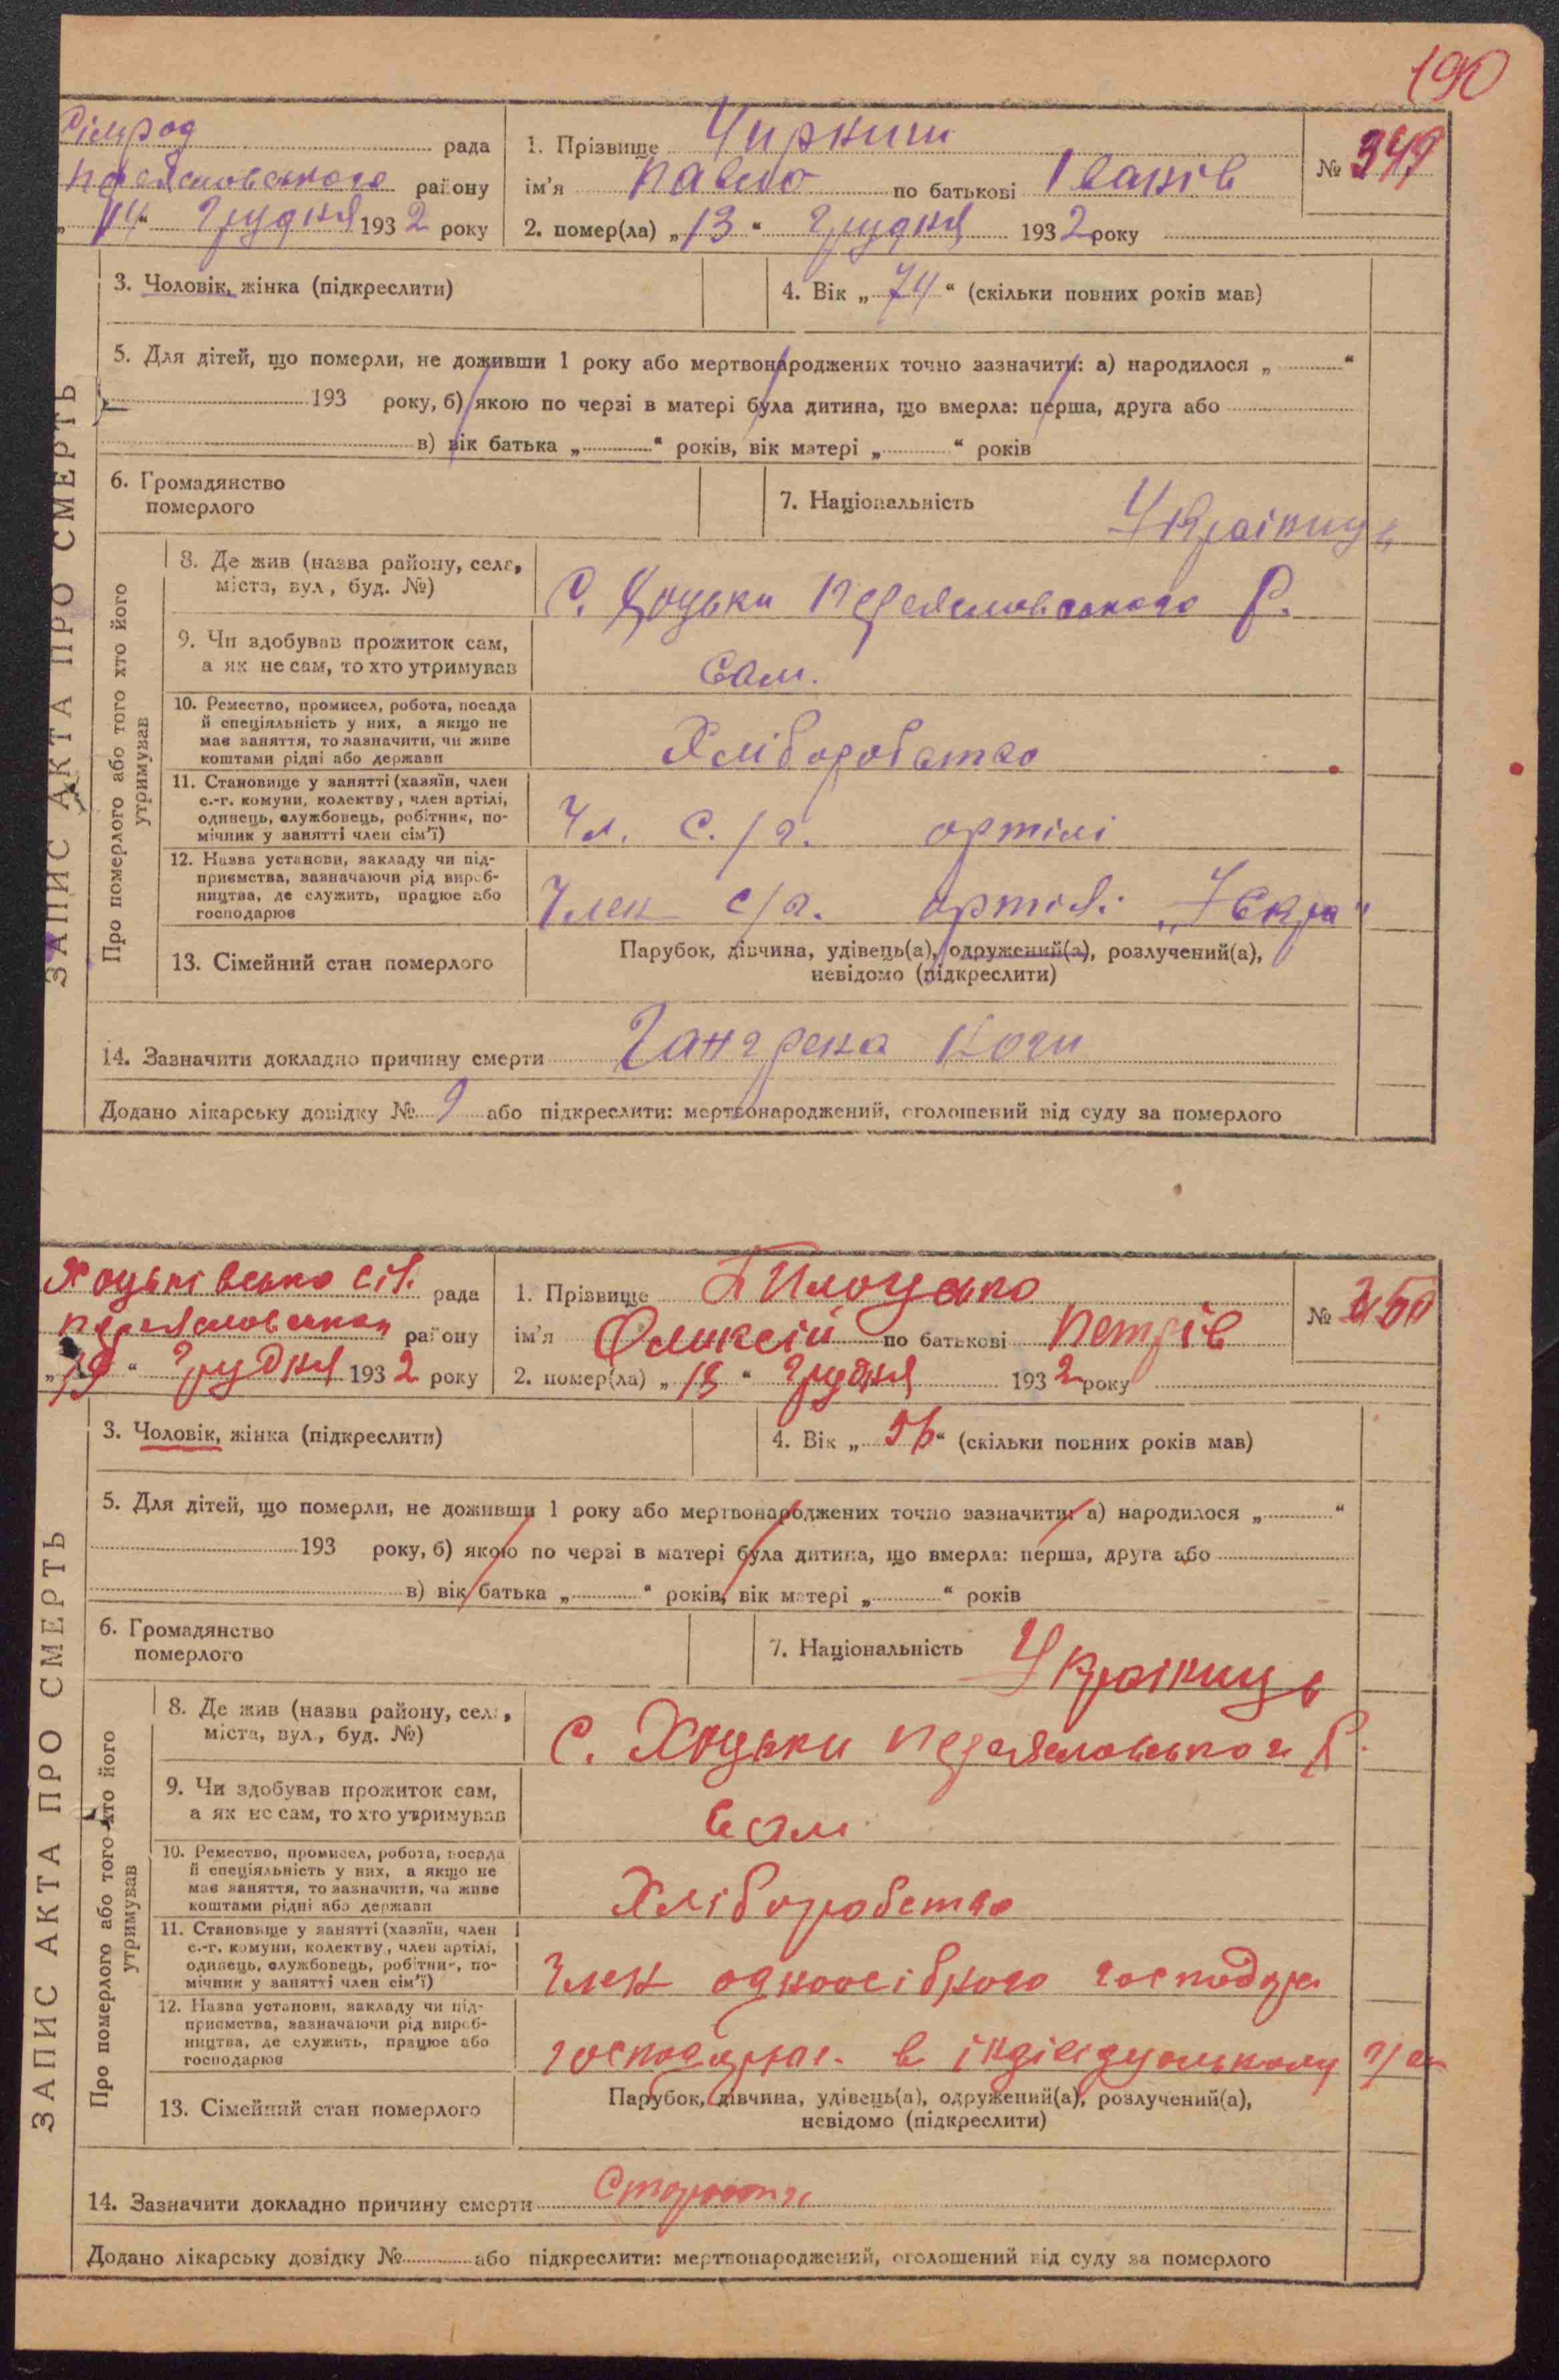 190
Сільрад рада
Переяславського району
„14“ Грудня 1932 року
1. Прізвище Чиркин
ім'я Павло по батькові Іванів
№ 349
2. помер(ла) „13“ Грудня 1932 року
3. Чоловік, жінка (підкреслити)
4. Вік „74“ (скільки повних років мав)
5. Для дітей, що померли, не доживши 1 року або мертвонароджених точно зазначити: а) народилося „ “
193 року, б) якою по черзі в матері була дитина, що вмерла: перша, друга або
в) вік батька „ “ років, вік матері „ “ років
6. Громадянство
померлого
7. Національність Україниць
ЗАПИС АКТА ПРО СМЕРТЬ
Про померлого або того хто його
утримував
8. Де жив (назва району, села,
міста, вул., буд. №)
С. Хоцьки Переяславського Р.
9. Чи здобував прожиток сам,
а як не сам, то хто утримував
Сам.
10. Ремество, промисел, робота, посада
й спеціяльність у них, а якщо не
має заняття, то зазначити, чи живе
коштами рідні або держави
Хліборобство
11. Становище у занятті (хазяїн, член
с.-г. комуни, колективу, член артілі,
одинець, службовець, робітник, по-
мічник у занятті член сім'ї)
Чл. С./г. артілі
12. Назва установи, закладу чи під-
приємства, зазначаючи рід вироб-
ництва, де служить, працює або
господарює
Член с/г. артілі „Іскра“
13. Сімейний стан померлого
Парубок, дівчина, удівець(а), одружений(а), розлучений(а),
невідомо (підкреслити)
14. Зазначити докладно причину смерти Гангрена Ноги
Додано лікарську довідку № 9 або підкреслити: мертвонароджений, оголошений від суду за померлого
Хоцьківсько сіл. рада
Переяславськог району
„19“ Грудня 1932 року
1. Прізвище
ім'я Оликсій по батькові Петрів
№ 350
2. помер(ла) „18“ Грудня 1932 року
3. Чоловік, жінка (підкреслити)
4. Вік „ “ (скільки повних років мав)
5. Для дітей, що померли, не доживши 1 року або мертвонароджених точно зазначити: а) народилося „ “
193 року, б) якою по черзі в матері була дитина, що вмерла: перша, друга або
в) вік батька „ “ років, вік матері „ “ років
6. Громадянство
померлого
7. Національність Україниць
ЗАПИС АКТА ПРО СМЕРТЬ
Про померлого або того хто його
утримував
8. Де жив (назва району, села,
міста, вул., буд. №)
С. Хоцьки Переяславського Р.
9. Чи здобував прожиток сам,
а як не сам, то хто утримував
Сам
10. Ремество, промисел, робота, посада
й спеціяльність у них, а якщо не
має заняття, то зазначити, чи живе
коштами рідні або держави
Хліборобство
11. Становище у занятті (хазяїн, член
с.-г. комуни, колективу, член артілі,
одинець, службовець, робітник, по-
мічник у занятті член сім'ї)
Член одноосібного господар
12. Назва установи, закладу чи під-
приємства, зазначаючи рід вироб-
ництва, де служить, працює або
господарює
господарює в індівідуальному
13. Сімейний стан померлого
Парубок, дівчина, удівець(а), одружений(а), розлучений(а),
невідомо (підкреслити)
14. Зазначити докладно причину смерти Старость
Додано лікарську довідку № або підкреслити: мертвонароджений, оголошений від суду за померлого